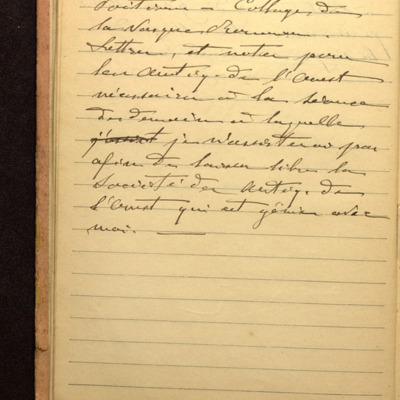 Poitevin — College de
la
Lettres, et notes pour
les Antiq. de l'Ouest
nécessaires à la séance
de demain à laquelle
j'assist je n'assisterai pas
afin de laisser libre la
Société des Antiq. de
l'Ouest qui est gênée avec
moi. —